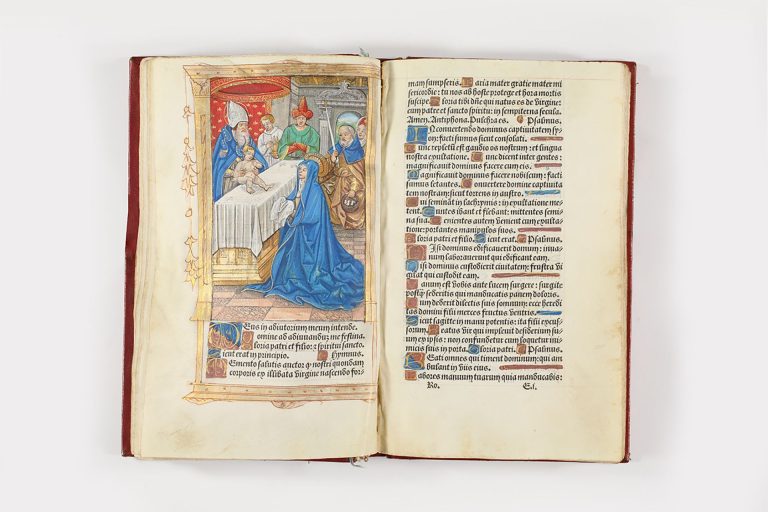 Deus in adiutorium meum intende.
Domine ad adiuvandum me festina.
Gloria patri et filio: & spiritui sancto.
Sicut erat in principio. Hymnus.
Memento salutis auctor q nostri quondam
corporis ex illibata virgine nascendo for-
mam sumpseris. Maria mater gratie mater mi
sericordie: tu nos ab hoste protege et hora mortis
suscipe. Gloria tibi dñe qui natus es de virgine:
cum patre et sancto spiritu: in sempiterna secula.
Amen. Antiphona. Pulchra es. Psalmus.
In convertendo dominus captivitatem sy-
on: facti sumus sicut consolati.
Tunc repletum est gaudio os nostrum: et lingua
nostra exultatione. Tunc dicent inter gentes:
magnificavit dominus facere cum eis.
Magnificavit dominus facere nobiscum: facti
sumus letantes. Convertere domine captivita
tem nostram: sicut torrens in austro.
Qui seminant in lachrymis: in exultatione me-
tent. Euntes ibant et flebant: mittentes semi-
na sua. Venientes autem venient cum exulta-
tione: portantes manipulos suos.
Gloria patri et filio. Sicut erat. Psalmus.
Nisi dominus edificaverit domum: in va-
num laboraverunt qui edificant eam.
Nisi dominus custodierit civitatem: frustra vi
gilat qui custodit eam.
Vanum est vobis ante lucem surgere: surgite
postq̃ sederitis qui manducatis panem doloris.
Cum dederit dilectis suis somnum: ecce heredi
tas domini filii merces fructus ventris.
Sicut sagitte in manu potentis: ita filii excus-
sorum. Beatus vir qui implevit desiderium su-
um ex ipsis: non confundetur cum loquetur ini
micis suis in porta. Gloria patri. Psalmus.
Beati omnes qui timent dominum: qui am
bulant in viis eius.
Labores manuum tuarum quia manducabis:
Ro. E.i.